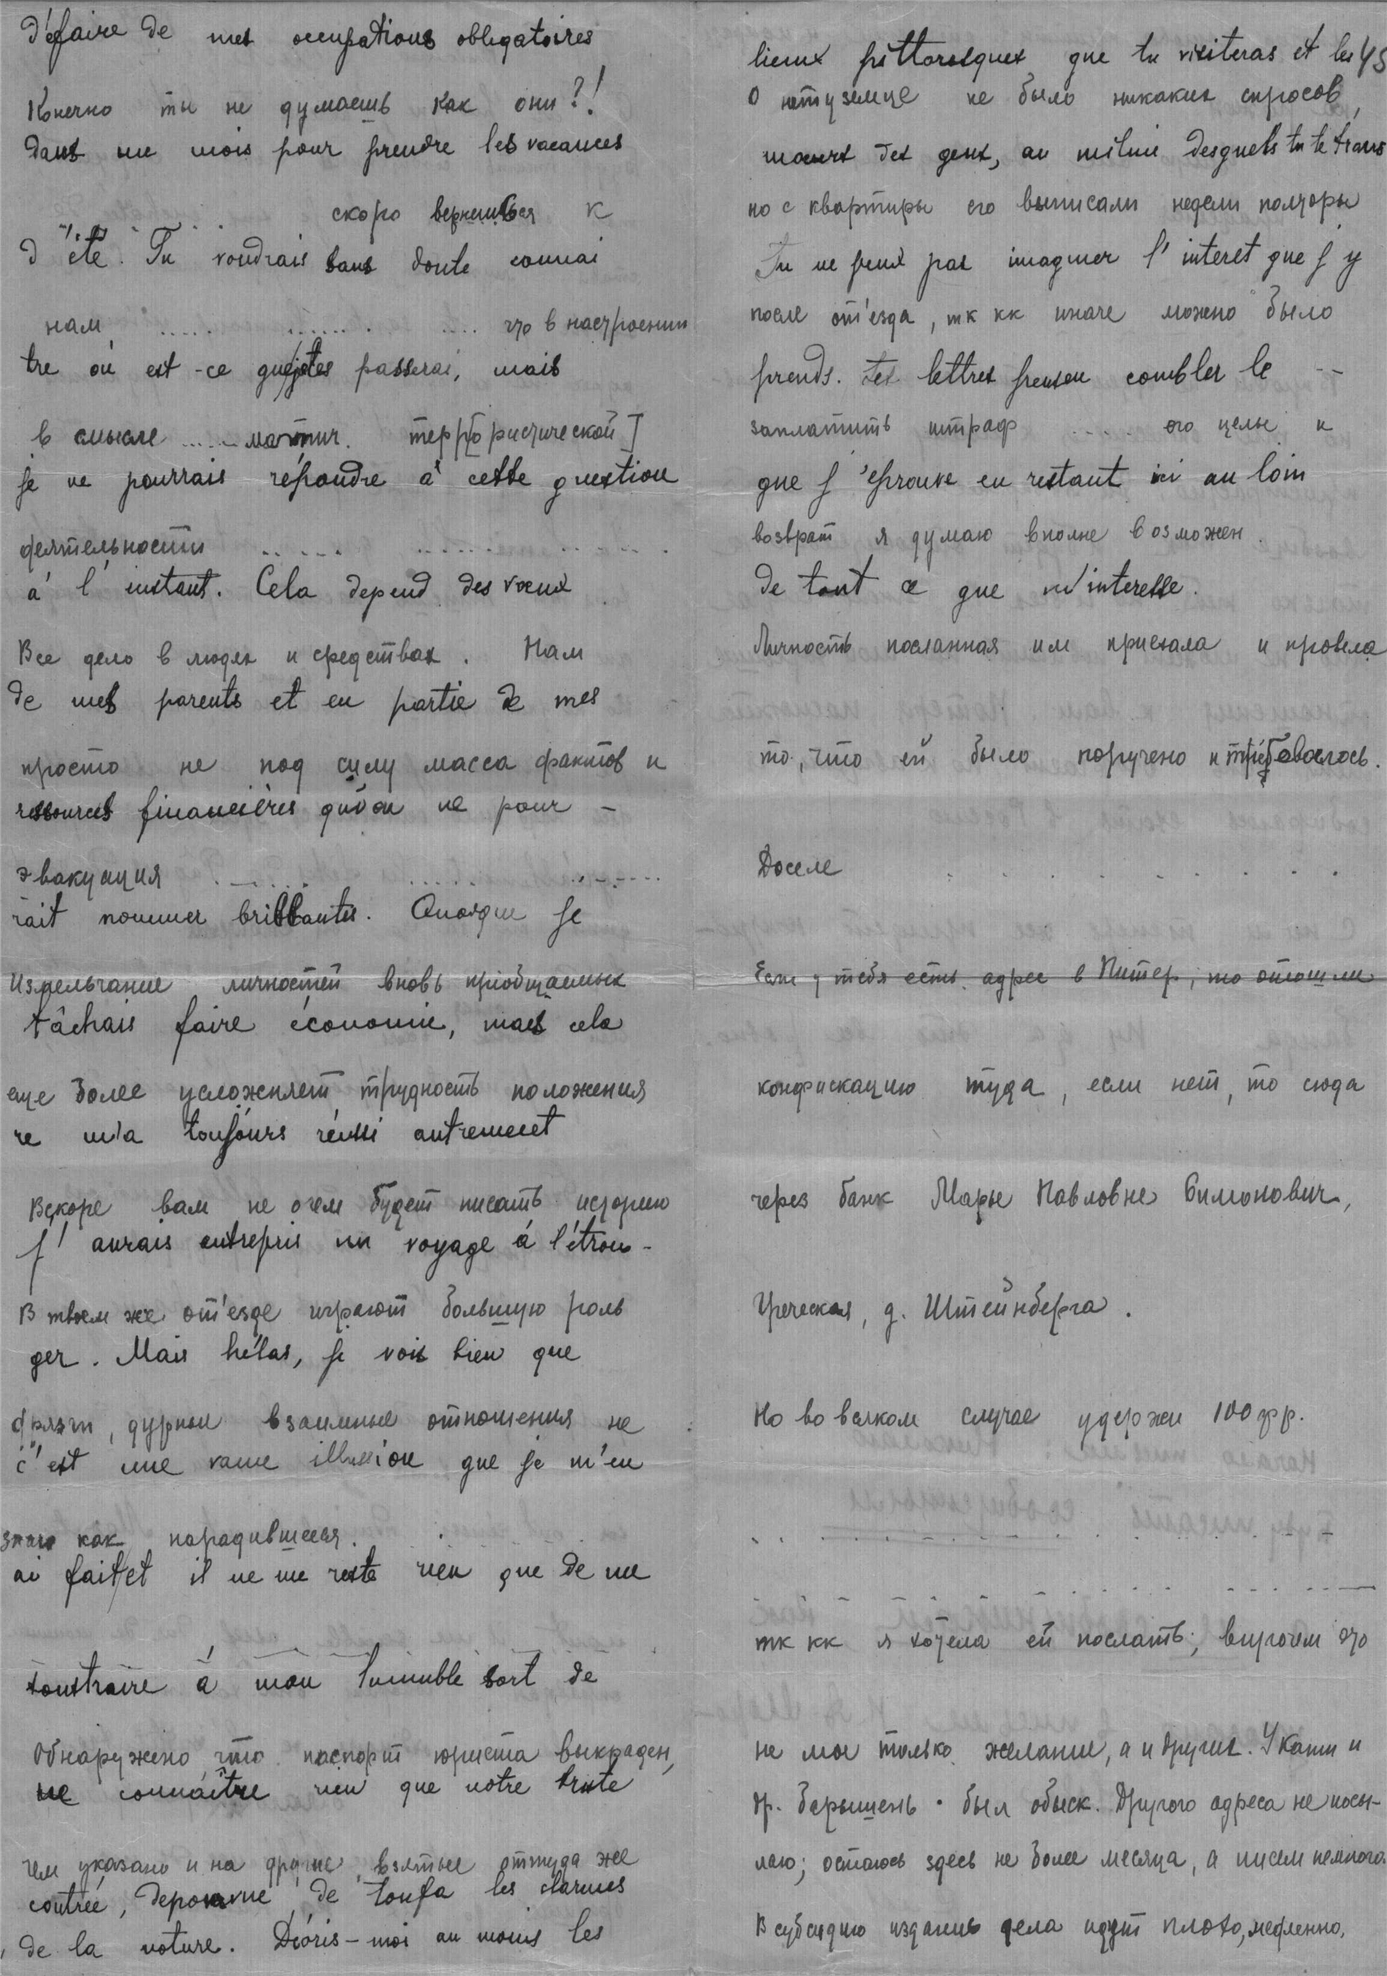 défaire de mes occupations obligatoires
Конечно ты не думаешь как они?!
dans un mois pour prendre les vacances
скоро вернешься к
d'été. Tu voudrais sans doute connai
нам ..... ....... .... что в настроении
tre où est-ce que je les passerai, mais
в смысле ..... террористической]
je ne pourrais répondre à cette question
деятельности ..... ...... ......
à l'instant. Cela depend des vœux
Все дело в людях и средствах. Нам
de mes parents et en partie de mes
просто не под силу масса фактов и
ressources financières qu'on ne pour-
эвакуация ...... ..... ......
rait nommer brillantes. Quoique je
Измельчание личностей вновь приобщаемых
tâchais faire économie, mais cela
еще более усложняет трудность положения
ne m'a toujours réussi autrement
Вскоре вам не о чем будет писать историю
j'aurais entrepris un voyage à l'étran-
В твоем же от'езде играют большую роль
ger. Mais hélas, je vois bien que
дрязги, дурные взаимные отношения не
c'est une vaine illusion que je m'en
знаю как народившееся.
ai fait et il ne me reste rien que de me
soustraire à mon humble sort de
Обнаружено, что паспорт юриста выкраден,
ne connaître rien que notre triste
чем указано и на другие, взятые оттуда же
contrée, de tous les charmes
de la nature. Décris-moi au moins les
lieux pittoresques que tu visiteras et les
О не было никаких спросов,
mœurs des gens, au milieu desquels tu te trouv
но с квартиры его выписали недели полторы
Tu ne peux pas imaginer l'interet que j'y
после от'езда, тк кк иначе можно было
prends. Tes lettres combler le --
заплатить штраф .... его целы и
que j'éprouve en restant ici au loin
возврат я думаю вполне возможен.
de tout ce que m'interesse.
Личность посланная им приехала и провела
то, что ей было поручено и требовалось.
Доселе . . . . . . . . .
Если у тебя есть адрес в Питер, то отошли
конфискацию туда, если нет, то сюда
через банк Марье Павловне Симонович,
Греческая, д. Штейнберга.
Но во всяком случае удержи 100 фр.
тк кк я хотела ей послать; впрочем это
не мое только желание, а и других. У Кати и
др. барышень был обыск. Другого адреса не посы-
лаю; остаюсь здесь не более месяца, а писем немного.
В субсидию издание дела идут плохо, медленно,